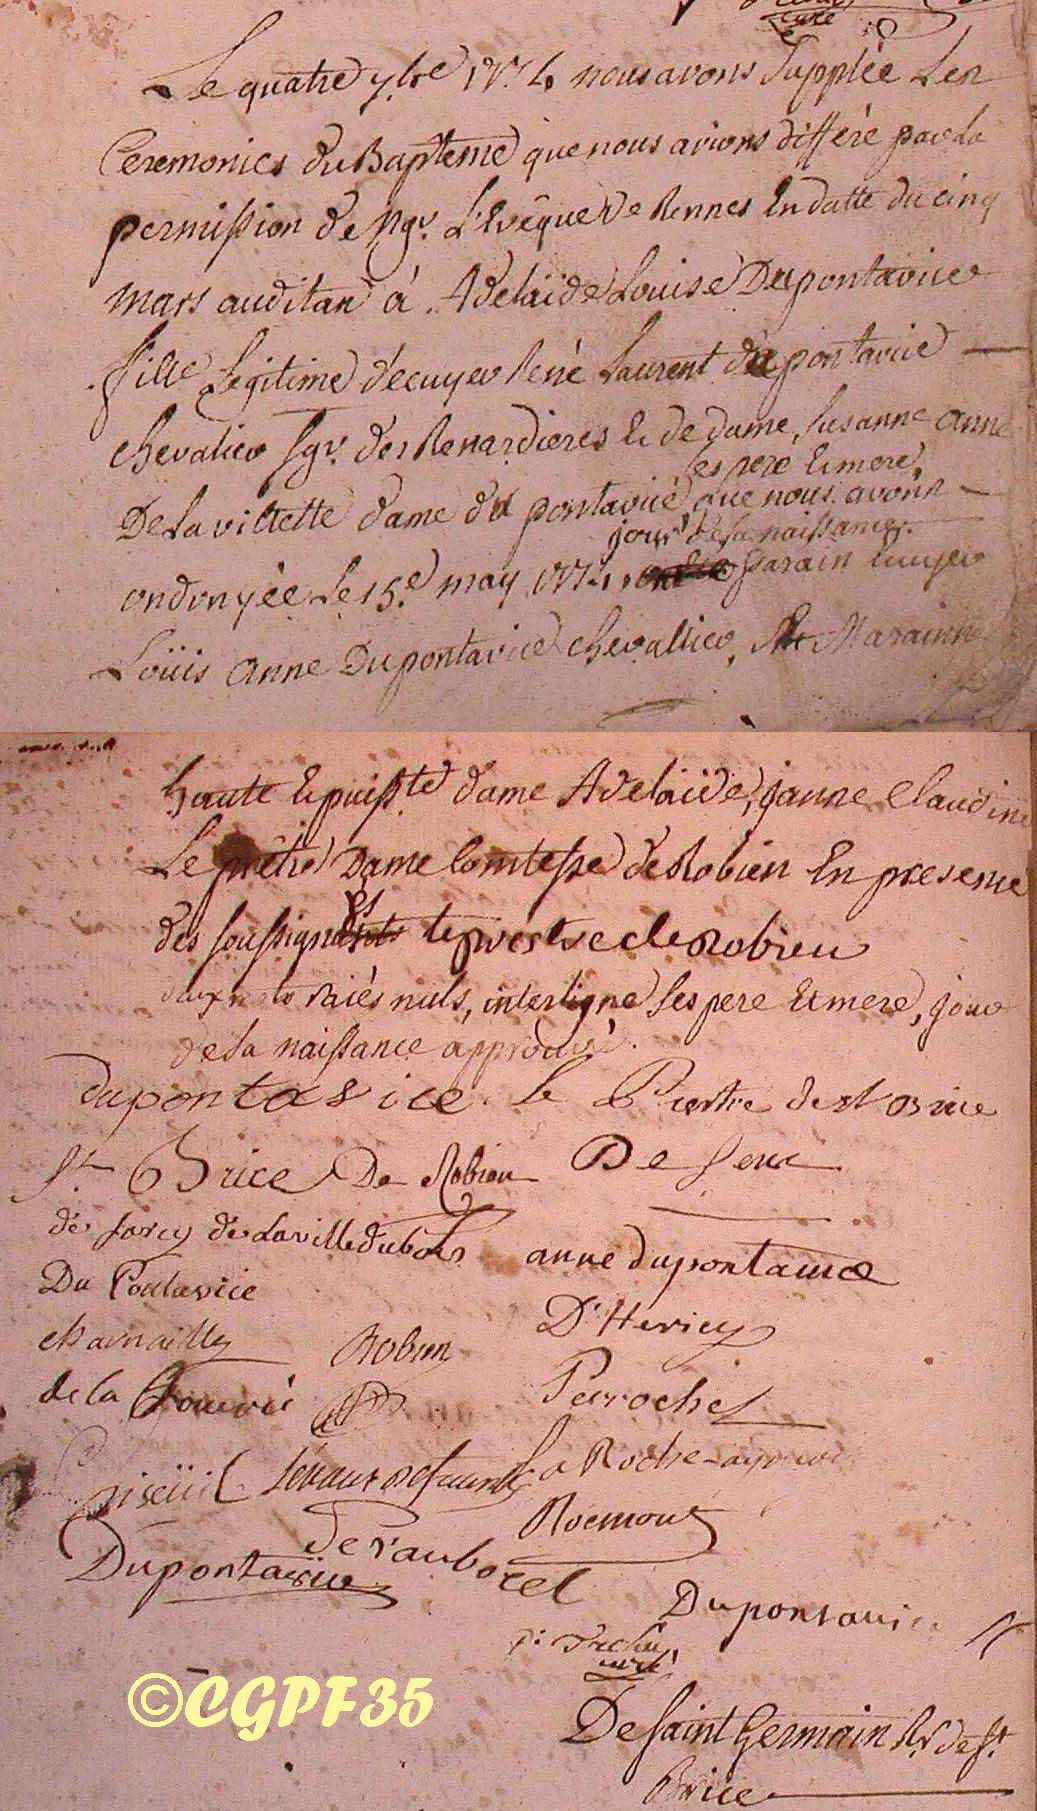 curé
Le quatre 7bre 1774 nous avons Supplée Les
Ceremonies du Bapteme que nous avions différé par la
permission de Mgr. L'Evêque de Rennes En datte du cinq
mars audit an à Adelaïde Louise Dupontavice
fille Legitime d'écuyer René Laurent du pontavice
chevalier Sgr. des Renardieres Et de dame, Susanne Anne
De La villette dame du pontavice que nous avons
ses pere Et mere,
ondoyée Le 15e may 1774, parain Ecuyer
jour de sa naissance.
Loüis Anne Dupontavice chevallier, Et Marainne
haute Et puisste dame Adelaïde, janne Claudine
Le prêtre Dame Comtesse de Robien En presence
des soussignés le prestre de Robien
mots raiés nuls, interligne ses pere Et mere, jour
de sa naissance approuvé.
dupontavice. le Prestre de St Brice
St Brice De Robien De
de farcy de Lavilledubois anne dupontavice
Du Pontavice D'Hericy
Robien Perrochel
de la
La Roche
Roemont
De Vauborel
Dupontavice
Dupontavice
curé
De saint Germain Rr de St.
Brice
©CGPF35